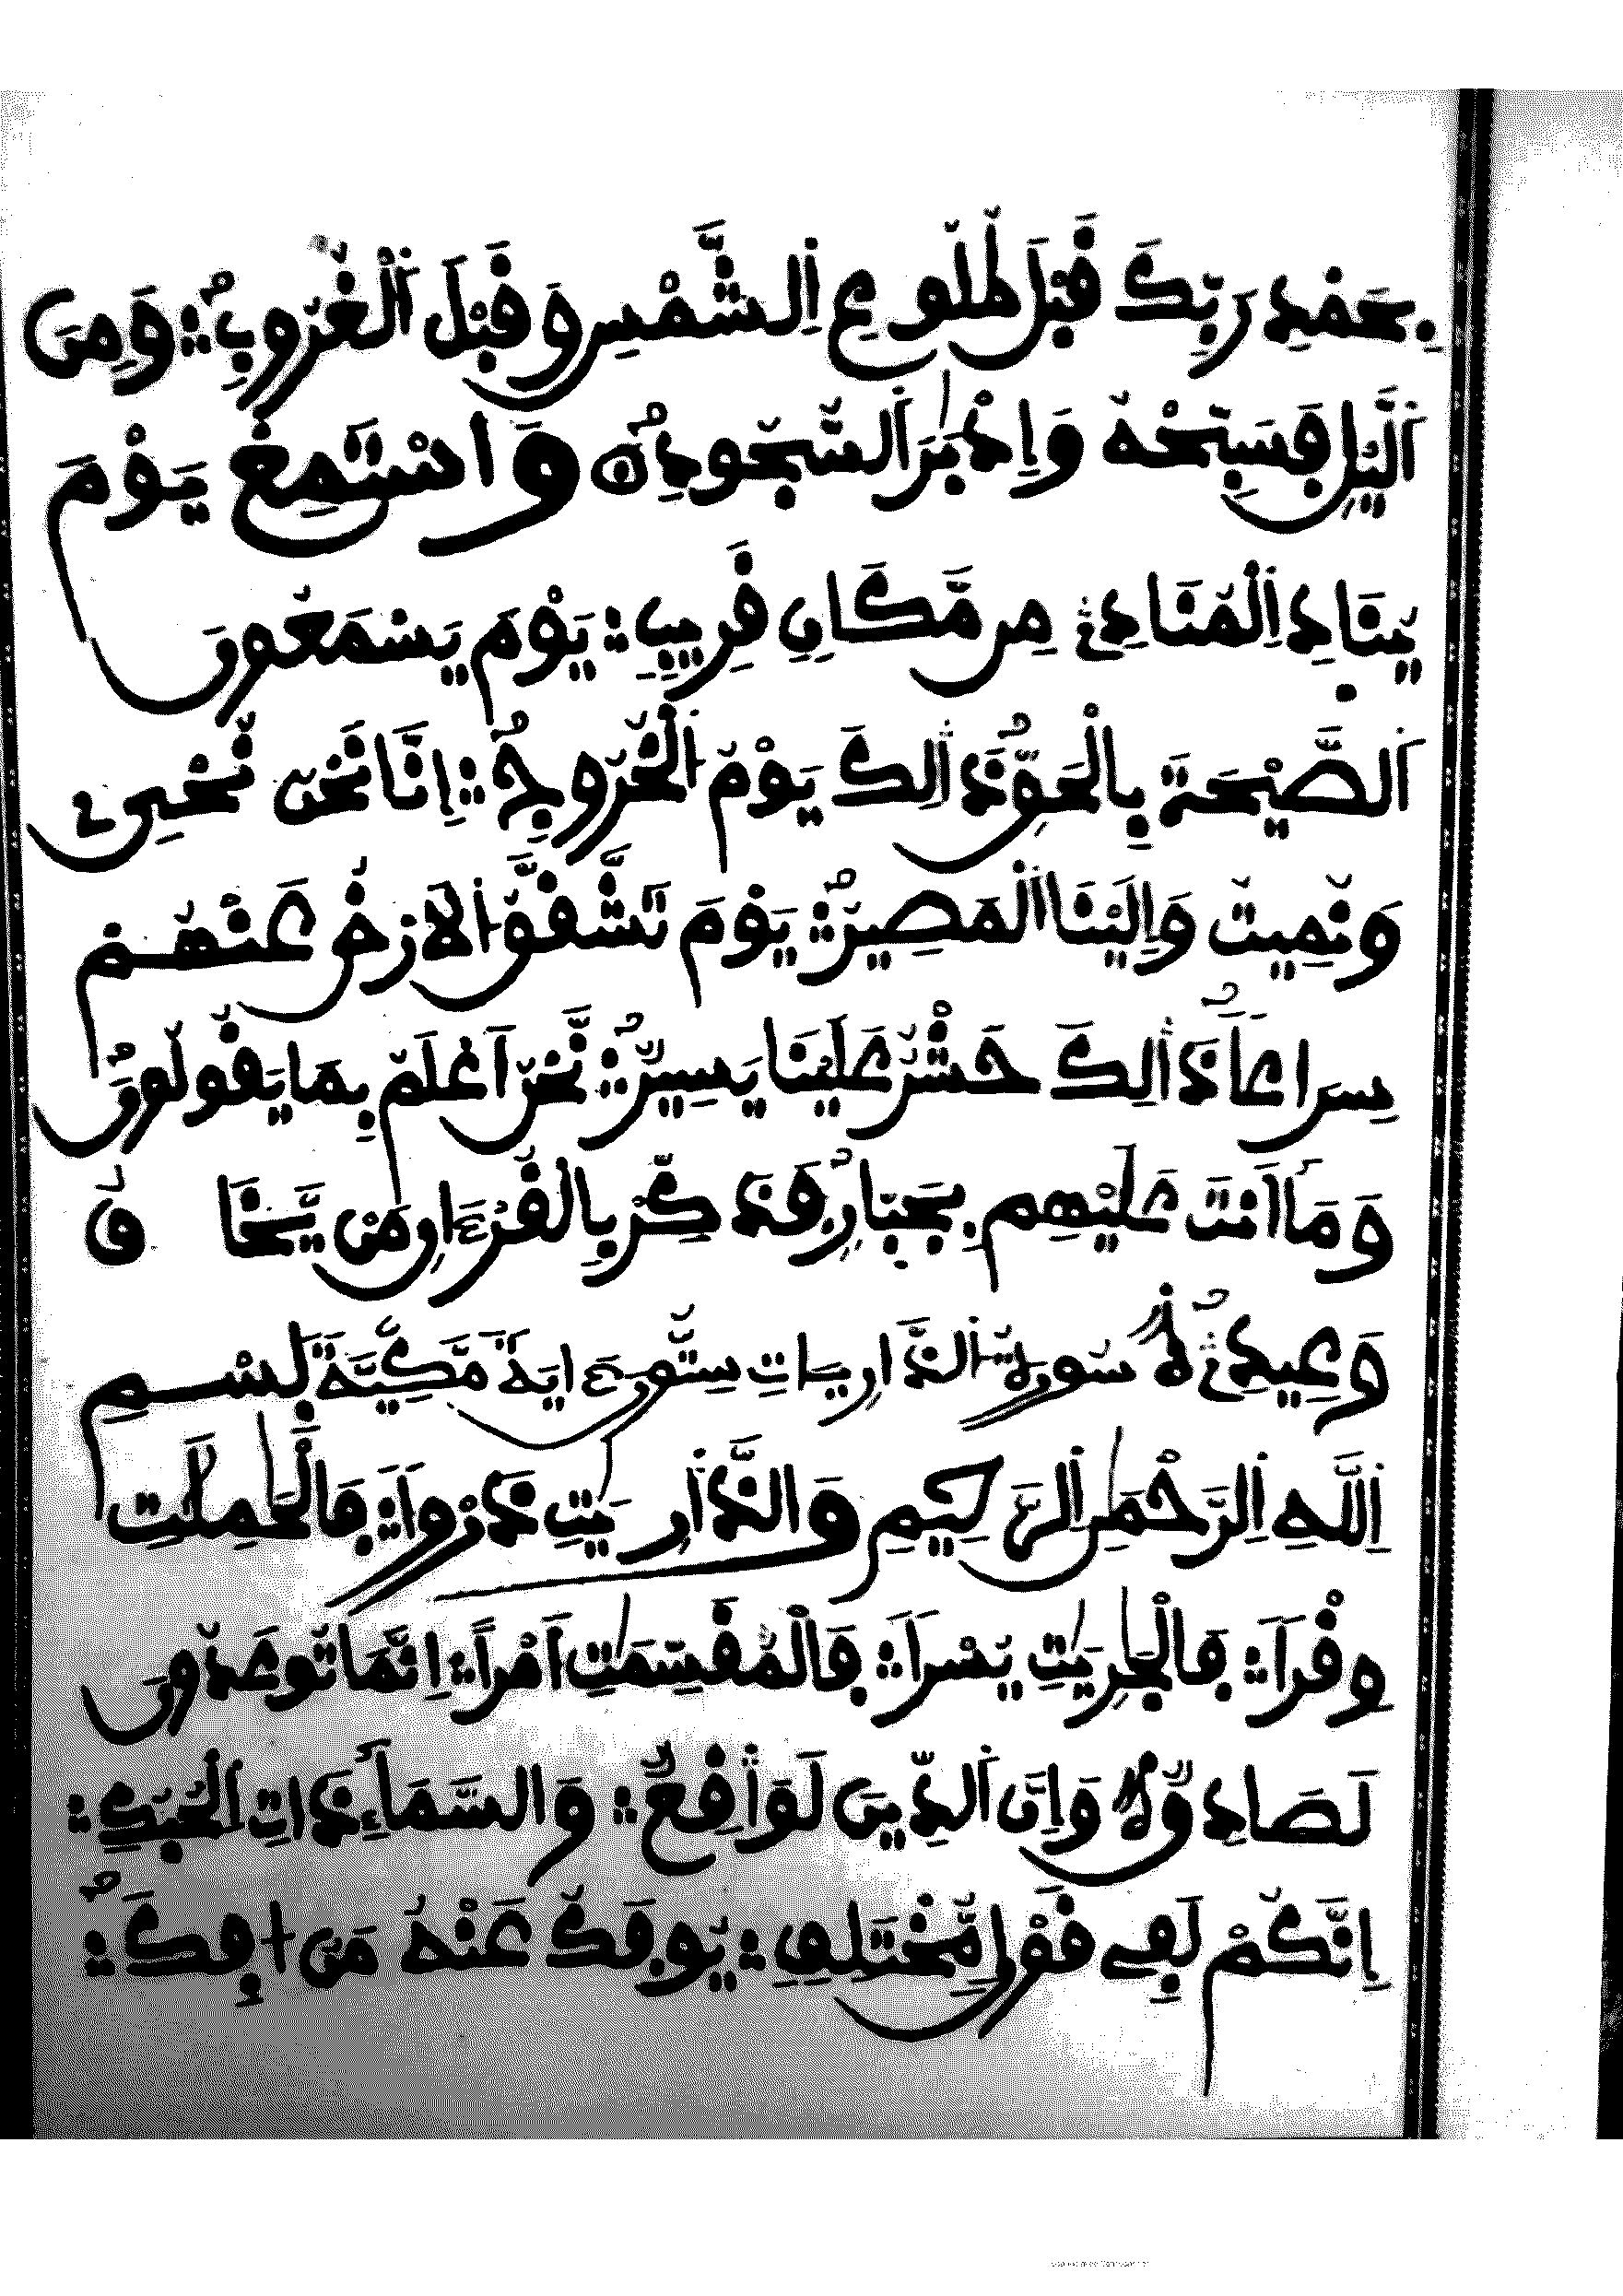 بِحَمْدِ رَبِّكَ قَبْلَ طُلُوعِ اِ۬لشَّمْسِ وَقَبْلَ اَ۬لْغُرُوبِ وَمِنَ
اَ۬لَّيْلِ فَسَبِّحْهُ وَإِدْبَٰرَ اَ۬لسُّجُودِ وَاسْتَمِعْ يَوْمَ
يُنَادِ اِ۬لْمُنَادِۦ مِن مَّكَانٖ قَرِيبٖ يَوْمَ يَسْمَعُونَ
اَ۬لصَّيْحَةَ بِالْحَقِّ ذَٰلِكَ يَوْمُ اُ۬لْخُرُوجِ إِنَّا نَحْنُ نُحْيِۦ
وَنُمِيتُ وَإِلَيْنَا اَ۬لْمَصِيرُ يَوْمَ تَشَّقَّقُ اُ۬لَارْضُ عَنْهُمْ
سِرَاعاٗ ذَٰلِكَ حَشْرٌ عَلَيْنَا يَسِيرٌ نَّحْنُ أَعْلَمُ بِمَا يَقُولُونَ
وَمَا أَنتَ عَلَيْهِم بِجَبّ۪ارٖ فَذَكِّرْ بِالْقُرْءَانِ مَنْ يَّخَافُ
وَعِيدِۦ سُورَةُ الذَّارِيَاتِ سِتُّونَ ءَايَةً مَّكِّيَّةٌ بِسْمِ
اِ۬للَّهِ اِ۬لرَّحْمَٰنِ اِ۬لرَّحِيمِ وَالذَّٰرِيَٰتِ ذَرْواٗ فَالْحَٰمِلَٰتِ
وِقْراٗ فَالْجَٰرِيَٰتِ يُسْراٗ فَالْمُقَسِّمَٰتِ أَمْراً إِنَّمَا تُوعَدُونَ
لَصَادِقٌ وَإِنَّ اَ۬لدِّينَ لَوَٰقِعٌ وَالسَّمَآءِ ذَاتِ اِ۬لْحُبُكِ
إِنَّكُمْ لَفِے قَوْلٖ مُّخْتَلِفٖ يُوفَكُ عَنْهُ مَنُ ا۟فِكَ